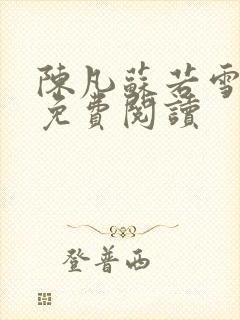 陳凡蘇若雪
免費閱讀
登普西